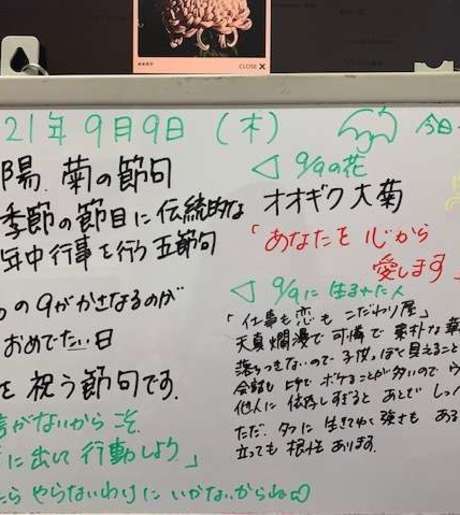 CLOSE X
21年9月9日 (木)
今日
陽、菊の節句
季節の節目に伝統的な
年中行事を行う五節句
の9がかさなるのが
おめでたい日
を祝う節句です。
がないからこそ
に出して行動しよう」
たらやらないわけにいかないからね
◁ 9/9の花
オオギク 大菊
「あなたを心から
愛します」
◁ 9/9に生まれた人
「仕事も恋もこだわり屋」
天真爛漫で可憐で素朴な
落ちつきないので子供っぽく見えること
会話も上手でボケることが多いので
他人に依存しすぎるとあとでしっ
ただ、タフに生きてゆく強さもある
立っても根性あります。